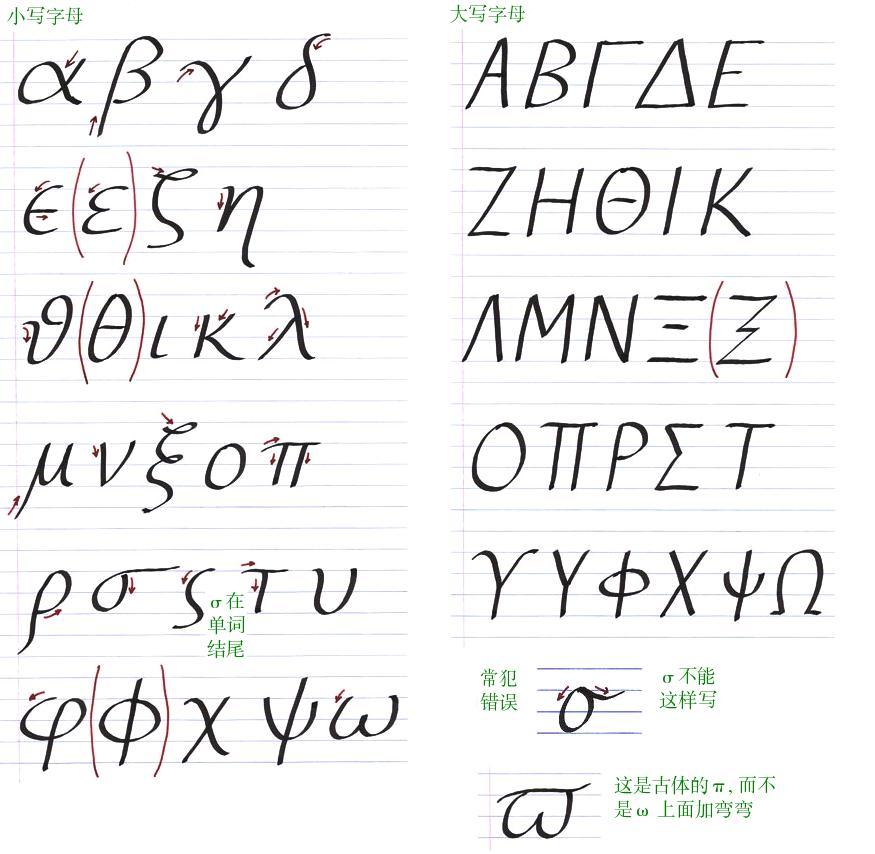 小写字母
α β γ δ
ϵ (ε) ζ η
ϑ (θ) ι κ λ
μ ν ξ ο π
ρ σ ς τ υ
σ 在
单词
结尾
φ (ϕ) χ ψ ω
大写字母
Α Β Γ Δ Ε
Ζ Η Θ Ι Κ
Λ Μ Ν Ξ (Ξ)
Ο Π Ρ Σ Τ
ϒ Υ Φ Χ Ψ Ω
常犯
错误
σ
σ 不能
这样写
ϖ
这是古体的 π, 而不
是 ω 上面加弯弯